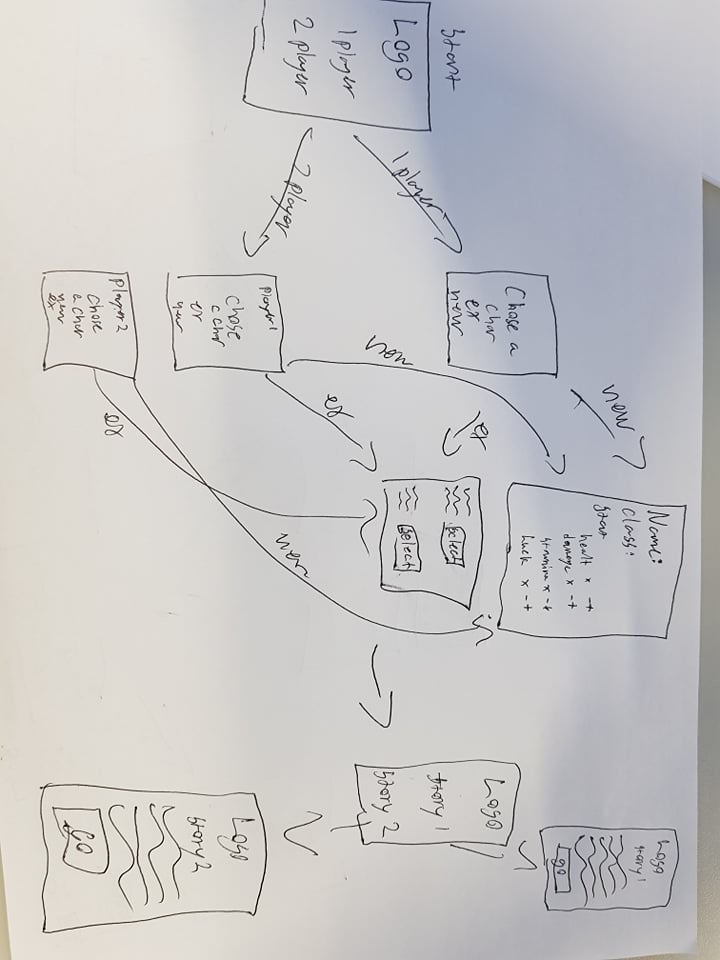 Start
Logo
1 player
2 player
1 player
2 player
Chose a
char
ex
new
player 1
chose
a char
ex
new
player 2
chose
a char
new
ex
new
new
ex
ex
ex
new
Name:
Class:
healt x - +
damage x - +
stamina x - +
luck x - +
select
select
Logo
story 1
story 2
Logo
story 1
go
Logo
story 2
Go